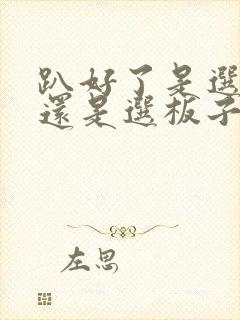 趴好了是選
還是選板子
左思